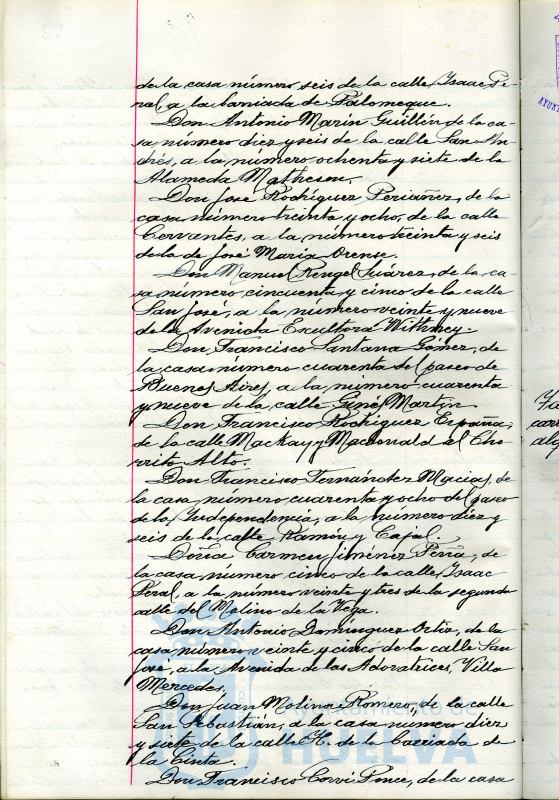 de la casa número seis de la calle Isaac Pe-
ral, a la barriada de Palomeque.
Don Antonio Marín Guillén de la ca-
sa número diez y seis de la calle San An-
drés, a la número ochenta y siete de la
Alameda Mathesen.
Don José Rodríguez Periáñez, de la
casa número treinta y ocho, de la calle
Cervantes, a la número treinta y seis
de la de José María Orense.
Don Manuel Rengel Suárez, de la ca-
sa número cincuenta y cinco de la calle
San José, a la número veinte y nueve
de la Avenida Escultora Withney.
Don Francisco Santana Gómez, de
la casa número cuarenta del paseo de
Buenos Aires, a la número cuarenta
y nueve de la calle Ginés Martín
Don Francisco Rodríguez España,
de la calle Mackay y Macdonald al Cho-
rrito Alto.
Don Francisco Fernández Macías, de
la casa número cuarenta y ocho del paseo
de la Independencia, a la número diez y
seis de la calle Ramón y Cajal.
Doña Carmen Jiménez Peña, de
la casa número cinco de la calle Isaac
Peral, a la número veinte y tres de la segunda
calle del Molino de la Vega.
Don Antonio Domínguez Ortiz, de la
casa número veinte y cinco de la calle San
José, a la Avenida de las Adoratrices, Villa
Mercedes.
Don Juan Molina Romero, de la calle
San Sebastián, a la casa número diez
y siete de la calle H. de la Barriada de
la Cinta.
Don Francisco Corvi Ponce, de la casa
Ayuntamiento de
HUELVA